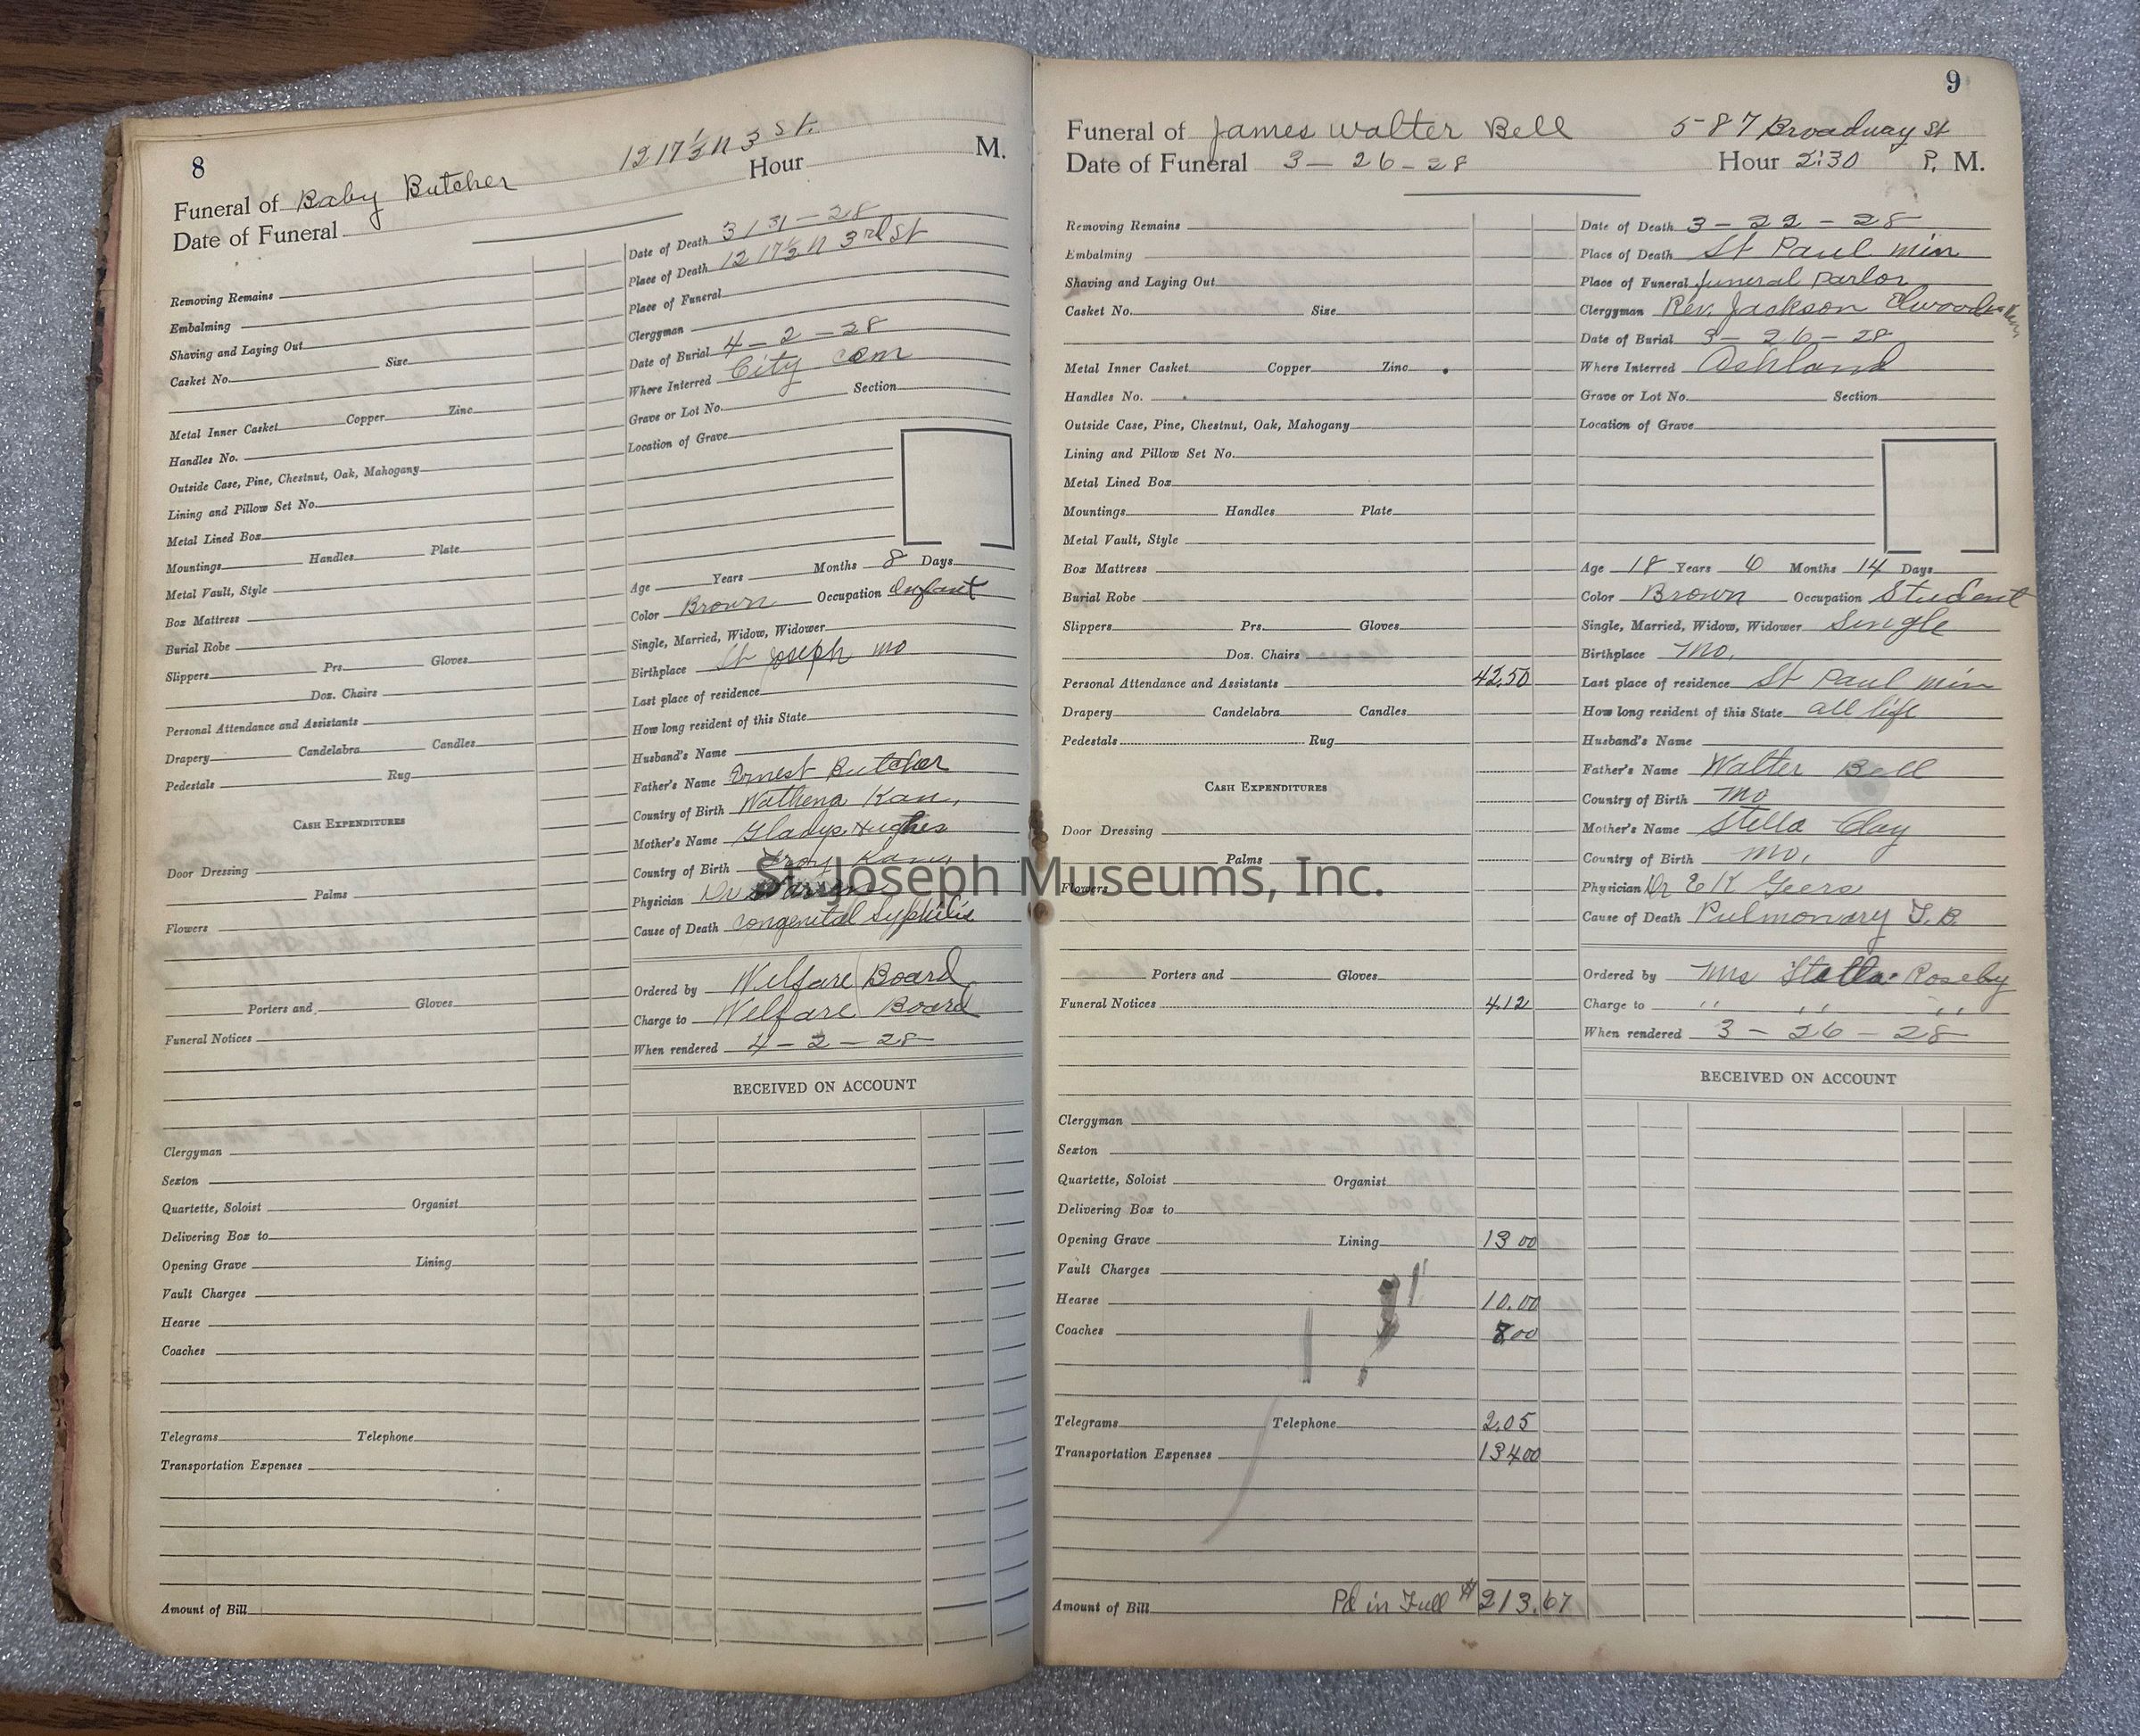 8
1217½ N 3 St.
Funeral of Baby Butcher
Date of Funeral Hour M.
Removing Remains
Embalming
Shaving and Laying Out
Casket No. Size
Metal Inner Casket Copper Zinc
Handles No.
Outside Case, Pine, Chestnut, Oak, Mahogany
Lining and Pillow Set No.
Metal Lined Box
Mountings Handles Plate
Metal Vault, Style
Box Mattress
Burial Robe
Slippers Prs. Gloves
Doz. Chairs
Personal Attendance and Assistants
Drapery Candelabra Candles
Pedestals Rug
CASH EXPENDITURES
Door Dressing
Palms
Flowers
Porters and Gloves
Funeral Notices
Clergyman
Sexton
Quartette, Soloist Organist
Delivering Box to
Opening Grave Lining
Vault Charges
Hearse
Coaches
Telegrams Telephone
Transportation Expenses
Amount of Bill
Date of Death 3/31-28
Place of Death 1217½ N 3rd St
Place of Funeral
Clergyman
Date of Burial 4-2-28
Where Interred City Cem
Grave or Lot No. Section
Location of Grave
Age Years Months 8 Days
Color Brown Occupation Infant
Single, Married, Widow, Widower
Birthplace St Joseph Mo
Last place of residence
How long resident of this State
Husband's Name
Father's Name Ernest Butcher
Country of Birth Wathena Kan,
Mother's Name Gladys Hughes
Country of Birth Troy Kan,
Physician Dr
Cause of Death Congenital Syphilis
Ordered by Welfare Board
Charge to Welfare Board
When rendered 4-2-28
RECEIVED ON ACCOUNT
9
Funeral of James Walter Bell 587 Broadway St
Date of Funeral 3-26-28 Hour 2:30 P. M.
Removing Remains
Embalming
Shaving and Laying Out
Casket No. Size
Metal Inner Casket Copper Zinc
Handles No.
Outside Case, Pine, Chestnut, Oak, Mahogany
Lining and Pillow Set No.
Metal Lined Box
Mountings Handles Plate
Metal Vault, Style
Box Mattress
Burial Robe
Slippers Prs. Gloves
Doz. Chairs
Personal Attendance and Assistants 42.50
Drapery Candelabra Candles
Pedestals Rug
CASH EXPENDITURES
Door Dressing
Palms
Flowers
Porters and Gloves
Funeral Notices 4.12
Clergyman
Sexton
Quartette, Soloist Organist
Delivering Box to
Opening Grave Lining 13 00
Vault Charges
Hearse 10.00
Coaches 8.00
Telegrams Telephone 2.05
Transportation Expenses 134.00
Amount of Bill Pd in Full $213.67
Date of Death 3-22-28
Place of Death St Paul Min
Place of Funeral funeral Parlor
Clergyman Rev. Jackson Elwood
Date of Burial 3-26-28
Where Interred Ashland
Grave or Lot No. Section
Location of Grave
Age 18 Years 6 Months 14 Days
Color Brown Occupation Student
Single, Married, Widow, Widower Single
Birthplace Mo.
Last place of residence St Paul Min
How long resident of this State all life
Husband's Name
Father's Name Walter Bell
Country of Birth Mo
Mother's Name Stella Clay
Country of Birth Mo,
Physician Dr E K Geers
Cause of Death Pulmonary T.B.
Ordered by Mrs Stella Roseby
Charge to " " "
When rendered 3-26-28
RECEIVED ON ACCOUNT
St. Joseph Museums, Inc.